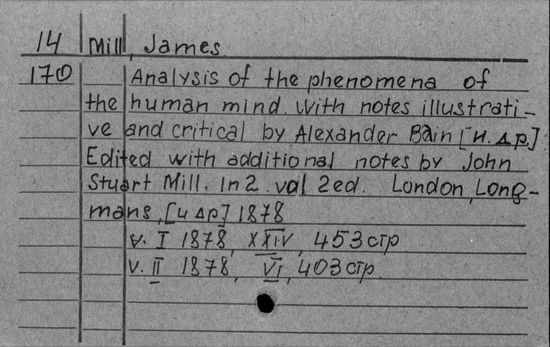 14 Mill, James
170 Analysis of the phenomena of
the human mind. With notes illustrati-
ve and critical by Alexander Bain [и. др.]
Edited with additional notes by John
Stuart Mill. In 2. val 2ed. London, Long-
mans, [и др] 1878
v. I 1878, XXIV, 453 стр
v. II 1878, VI, 403 стр.